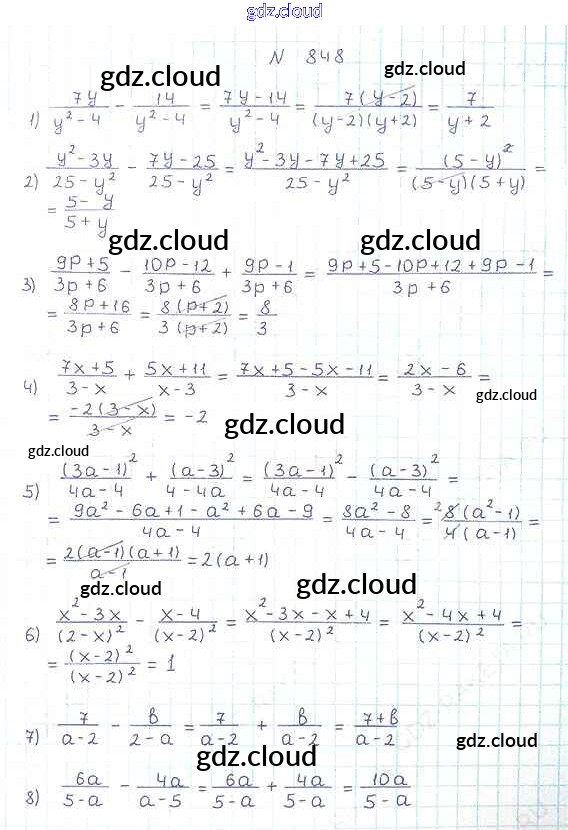 gdz.cloud
N 848
gdz.cloud gdz.cloud
1) 7y/(y²-4) - 14/(y²-4) = (7y-14)/(y²-4) = 7(y-2)/((y-2)(y+2)) = 7/(y+2)
gdz.cloud gdz.cloud
2) (y²-3y)/(25-y²) - (7y-25)/(25-y²) = (y²-3y-7y+25)/(25-y²) = (5-y)²/((5-y)(5+y)) =
= (5-y)/(5+y)
gdz.cloud gdz.cloud
3) (9p+5)/(3p+6) - (10p-12)/(3p+6) + (9p-1)/(3p+6) = (9p+5-10p+12+9p-1)/(3p+6) =
= (8p+16)/(3p+6) = 8(p+2)/(3(p+2)) = 8/3
gdz.cloud
4) (7x+5)/(3-x) + (5x+11)/(x-3) = (7x+5-5x-11)/(3-x) = (2x-6)/(3-x) =
gdz.cloud
= -2(3-x)/(3-x) = -2
gdz.cloud
gdz.cloud
5) (3a-1)²/(4a-4) + (a-3)²/(4-4a) = (3a-1)²/(4a-4) - (a-3)²/(4a-4) =
= (9a²-6a+1-a²+6a-9)/(4a-4) = (8a²-8)/(4a-4) = ²8(a²-1)/(4(a-1)) =
= 2(a-1)(a+1)/(a-1) = 2(a+1)
gdz.cloud gdz.cloud
6) (x²-3x)/(2-x)² - (x-4)/(x-2)² = (x²-3x-x+4)/(x-2)² = (x²-4x+4)/(x-2)² =
= (x-2)²/(x-2)² = 1
7) 7/(a-2) - b/(2-a) = 7/(a-2) + b/(a-2) = (7+b)/(a-2)
gdz.cloud
gdz.cloud
8) 6a/(5-a) - 4a/(a-5) = 6a/(5-a) + 4a/(5-a) = 10a/(5-a)